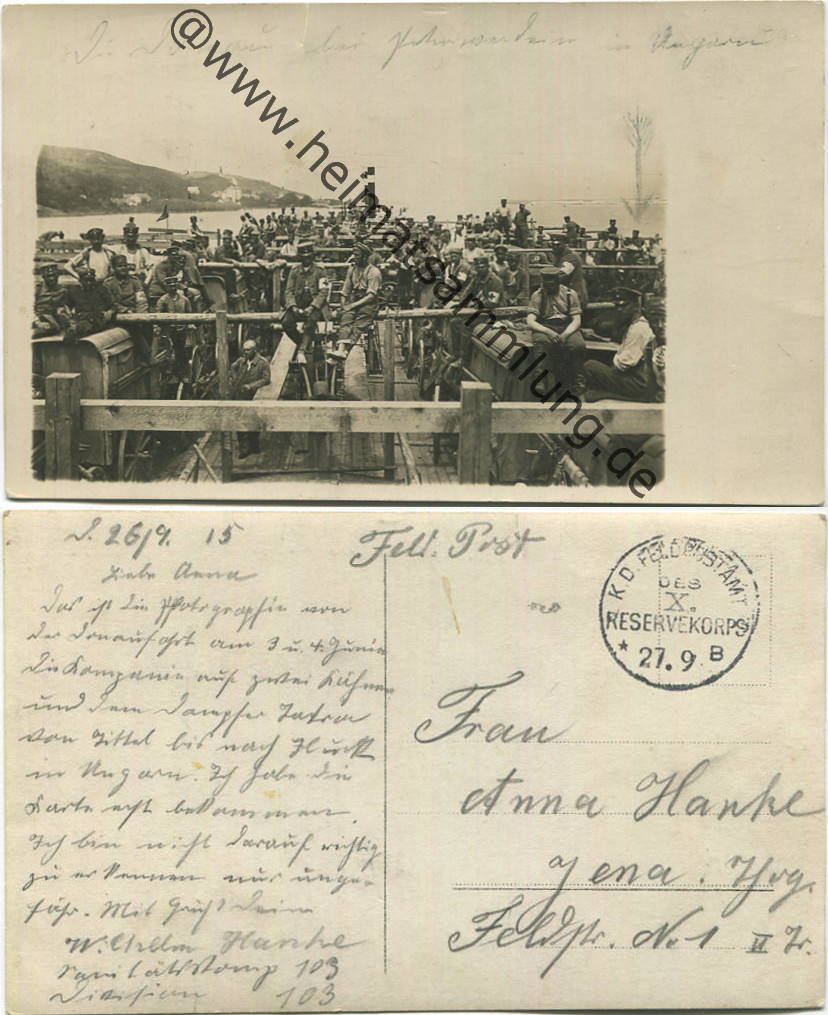 Die Donau bei Peterwardein in Ungarn
@www.heimatsammlung.de
D. 26/9. 15
Liebe Anna
Das ist die Photographie von
der Donaufahrt am 3 u. 4. Junie
Die Kompanie auf zwei Kähnen
und dem Dampfer Tatra
von Tittel bis nach
in Ungarn. Ich habe die
Karte erst bekommen.
Ich bin nicht darauf richtig
zu erkennen nur unge-
fähr. Mit Gruß Deine
Wilhelm Hanke
Sanitätskomp 103
Division 103
Feld. Post
K.D. FELDPOSTAMT
DES
X.
RESERVEKORPS
* 27.9 B
Frau
Anna Hanke
Jena. Thg.
Feldstr. No 1 II Tr.